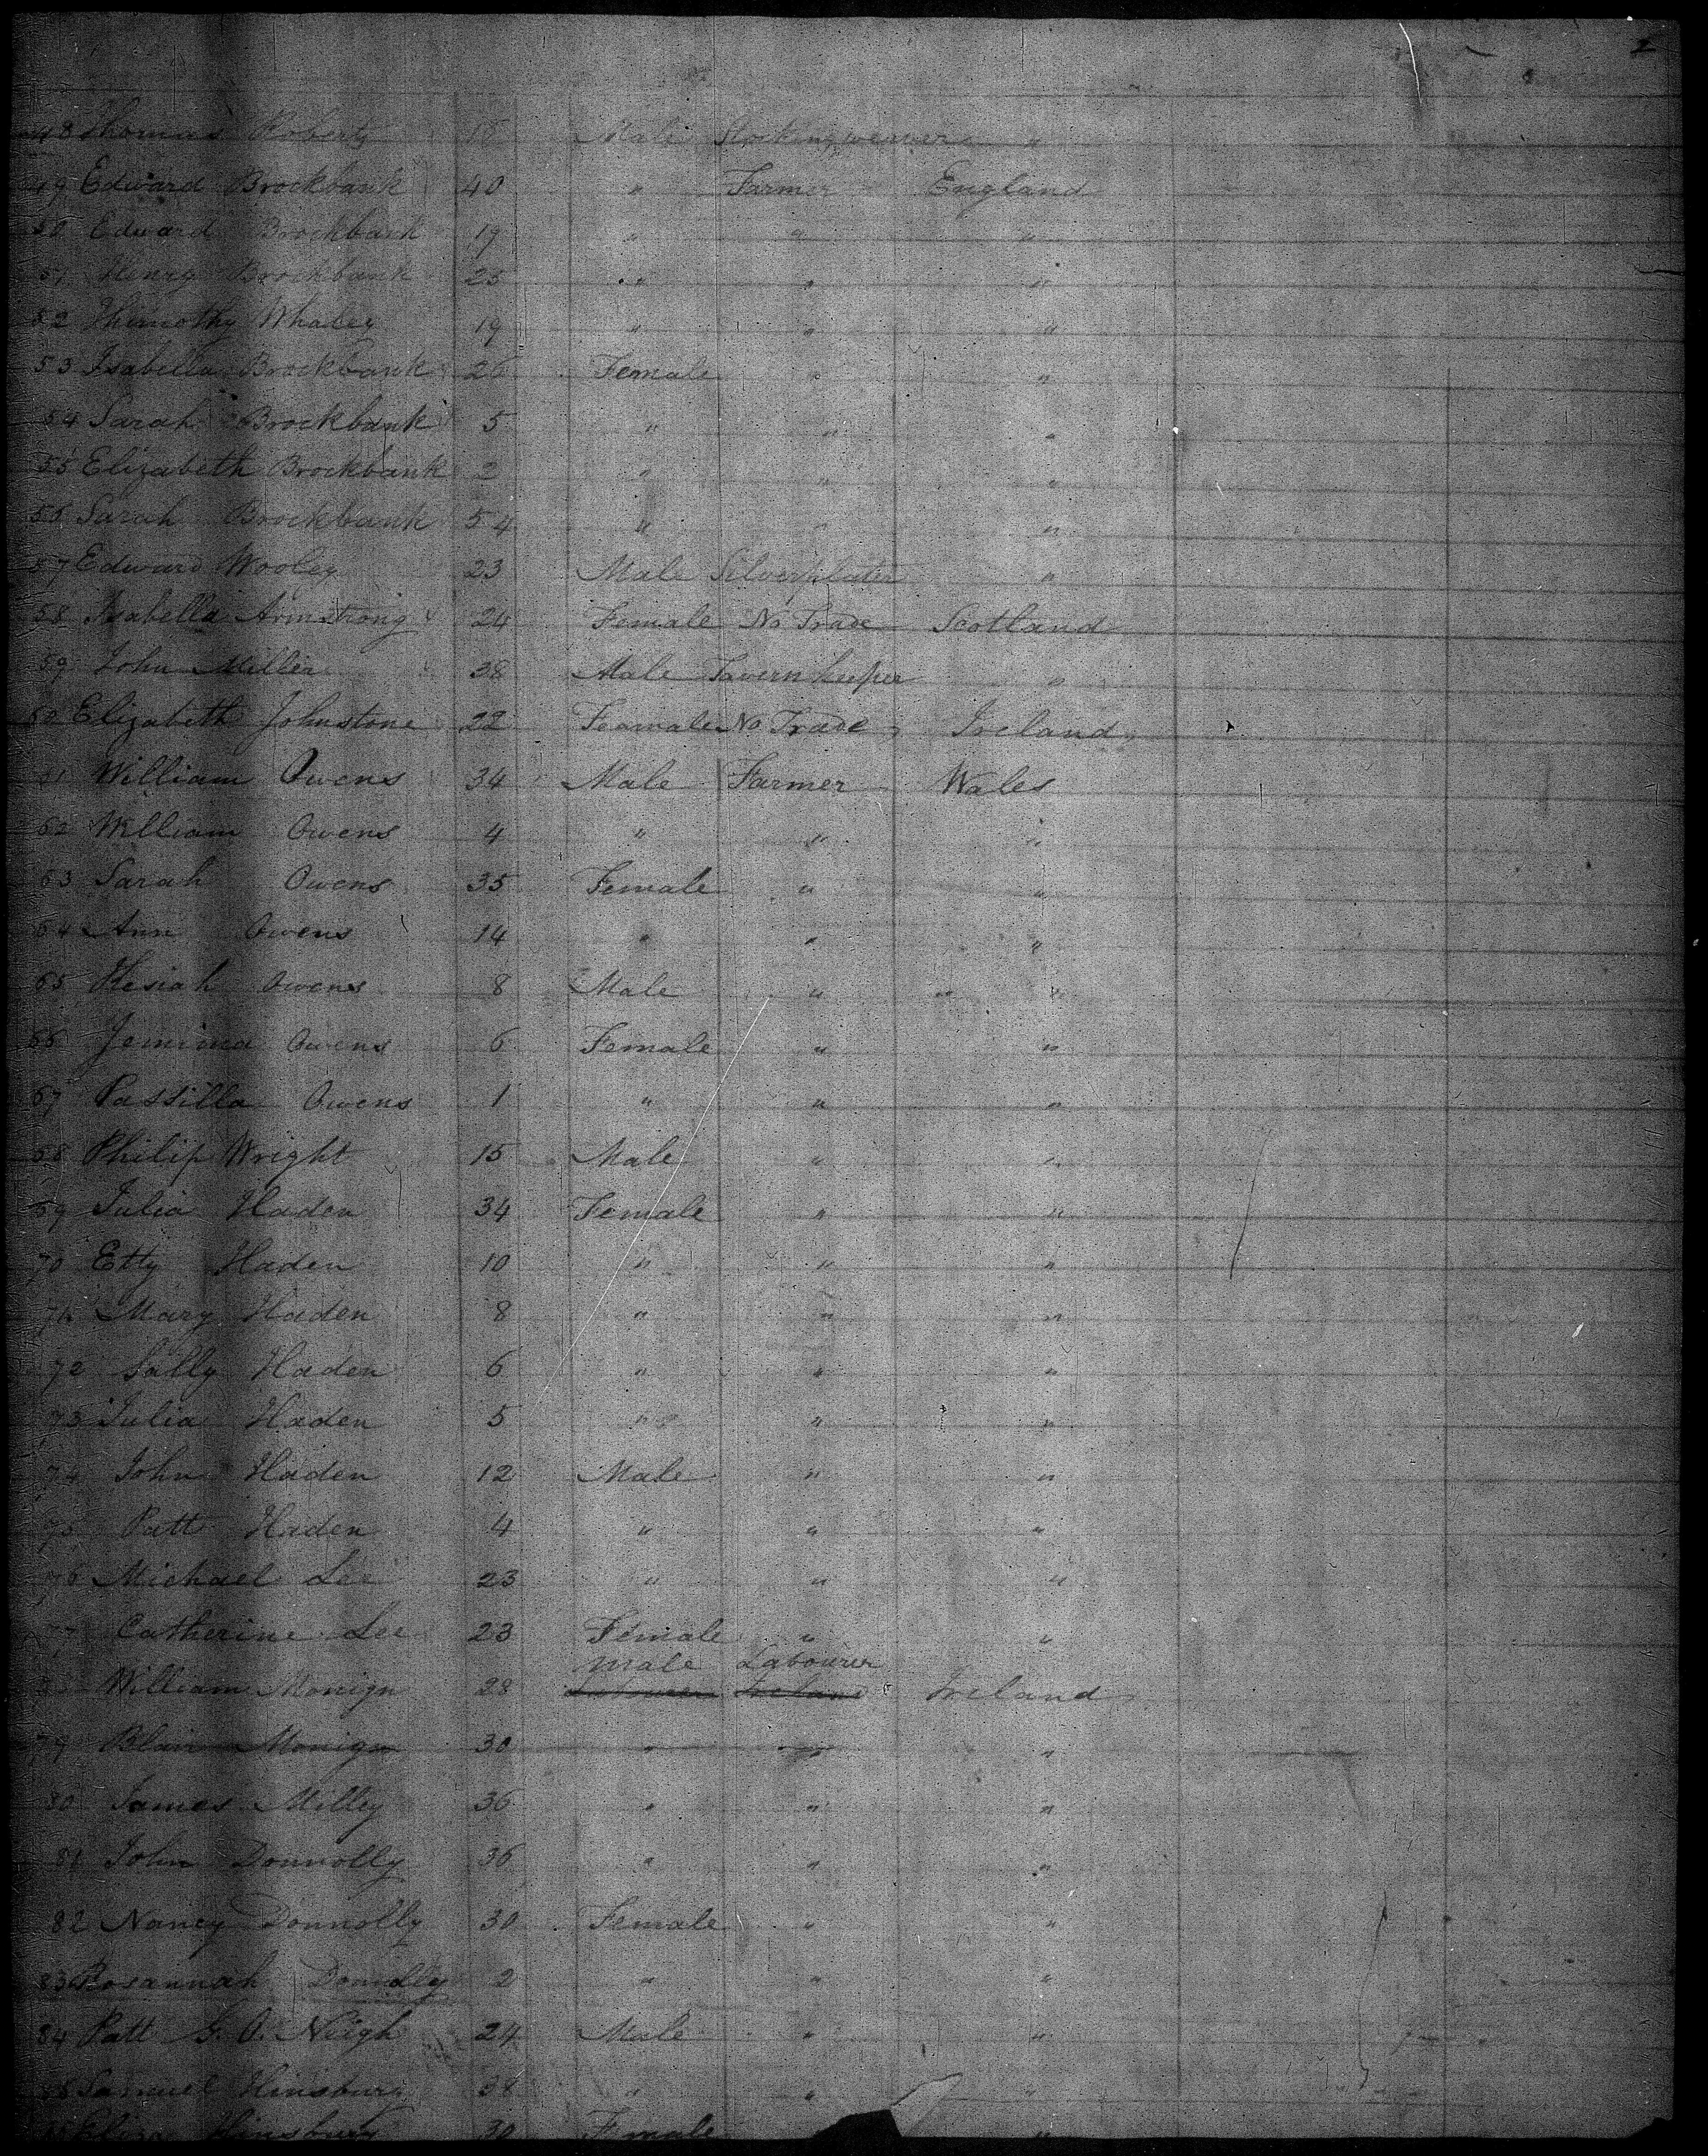 2
48 Thomas Roberts 18 Male Stocking weaver "
49 Edward Brockbank 40 " Farmer England
50 Edward Brockbank 19 " " "
51 Henry Brockbank 25 " " "
52 Thimothy Whaley 19 " " "
53 Isabella Brockbank 26 Female " "
54 Sarah Brockbank 5 " " "
55 Elizabeth Brockbank 2 " " "
56 Sarah Brockbank 54 " " "
57 Edward Wooley 23 Male Silverplater "
58 Isabella Armstrong 24 Female No Trade Scotland
59 John Miller 38 Male Tavern keeper "
60 Elizabeth Johnstone 22 Feamale No Trade Ireland
61 William Owens 34 Male Farmer Wales
62 William Owens 4 " " "
63 Sarah Owens 35 Female " "
64 Ann Owens 14 " " "
65 Kesiah Owens 8 Male " " "
66 Jemima Owens 6 Female " "
67 Passilla Owens 1 " " "
68 Philip Wright 15 Male " "
69 Julia Haden 34 Female " "
70 Etty Haden 10 " " "
71 Mary Haden 8 " " "
72 Sally Haden 6 " " "
73 Julia Haden 5 " " "
74 John Haden 12 Male " "
75 Patt Haden 4 " " "
76 Michael Lee 23 " " "
77 Catherine Lee 23 Female " "
Male Labourer
78 William Monign 28 Ireland
79 Monign 30 " " "
80 James Milley 36 " " "
81 John Donnolly 36 " " "
82 Nancy Donnolly 30 Female " "
83 Rosannah Donnolly 2 " " "
84 Patt G. O. Neigh 24 Male " "
85 Samuel Hinsbury 38 " " "
Eliza Hinsbury 30 Female "